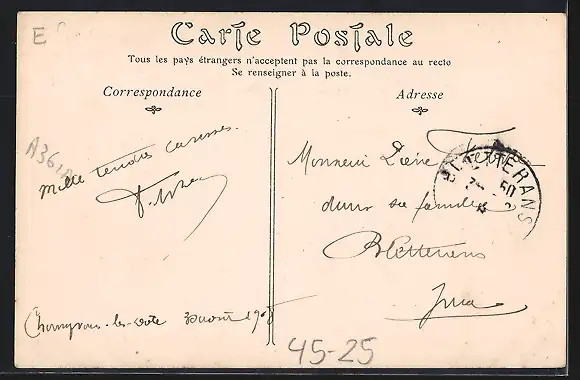 E
Carte Postale
Tous les pays étrangers n'acceptent pas la correspondance au recto
Se renseigner à la poste.
Correspondance
Adresse
A36
mille tendres caresses.
Monsieur
dans sa famille
Bletterans
Jura
BLETTERANS
50
les 30 août
45-25